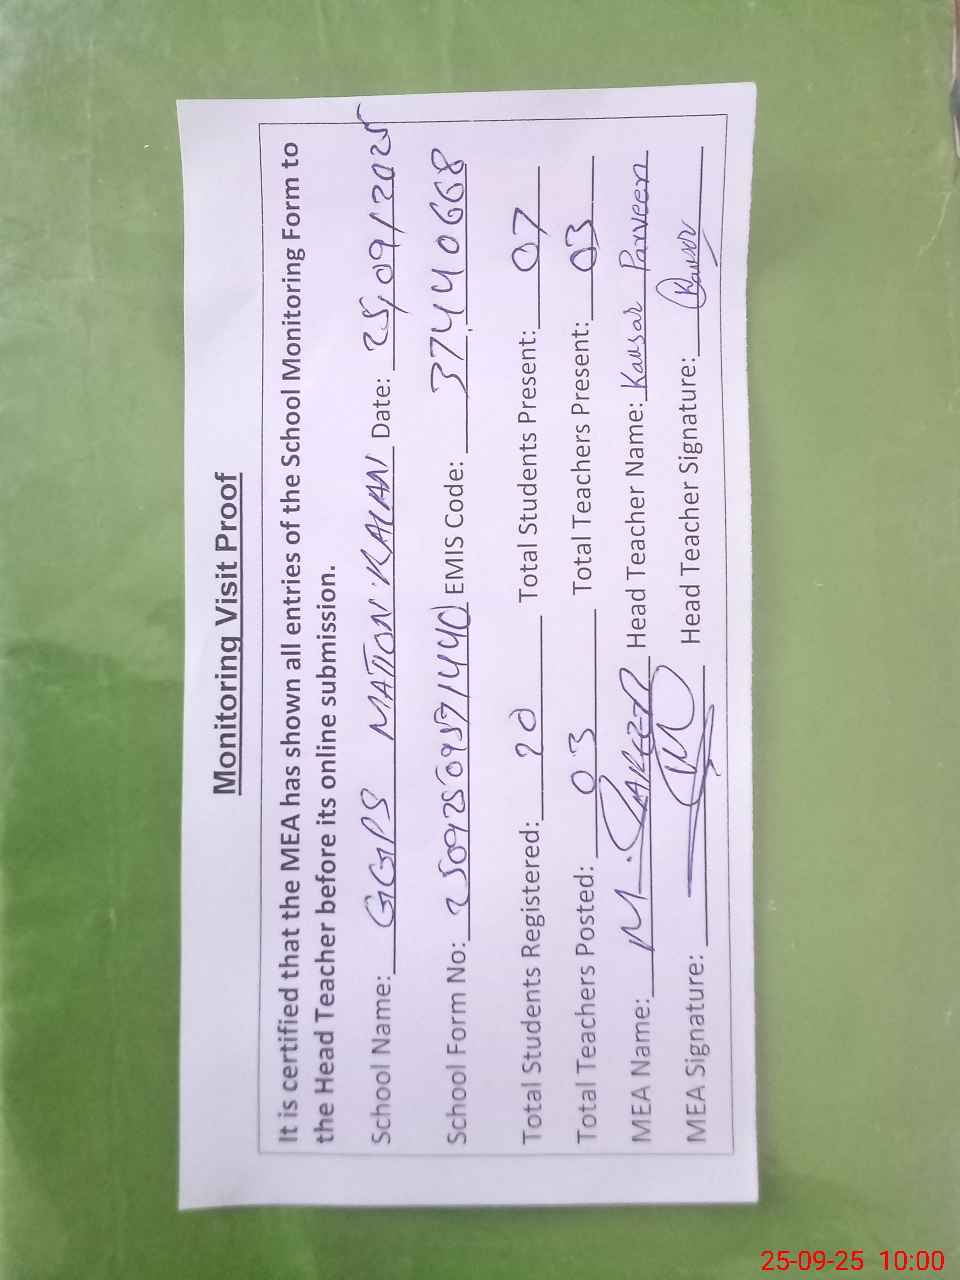 Monitoring Visit Proof
It is certified that the MEA has shown all entries of the School Monitoring Form to
the Head Teacher before its online submission.
School Name: GGPS MATTON KALAN Date: 25/09/2025
School Form No: 25092509571440 EMIS Code: 37440668
Total Students Registered: 20 Total Students Present: 07
Total Teachers Posted: 03 Total Teachers Present: 03
MEA Name: M. Head Teacher Name: Kausar Parveen
MEA Signature: Head Teacher Signature: Kausar
25-09-25 10:00